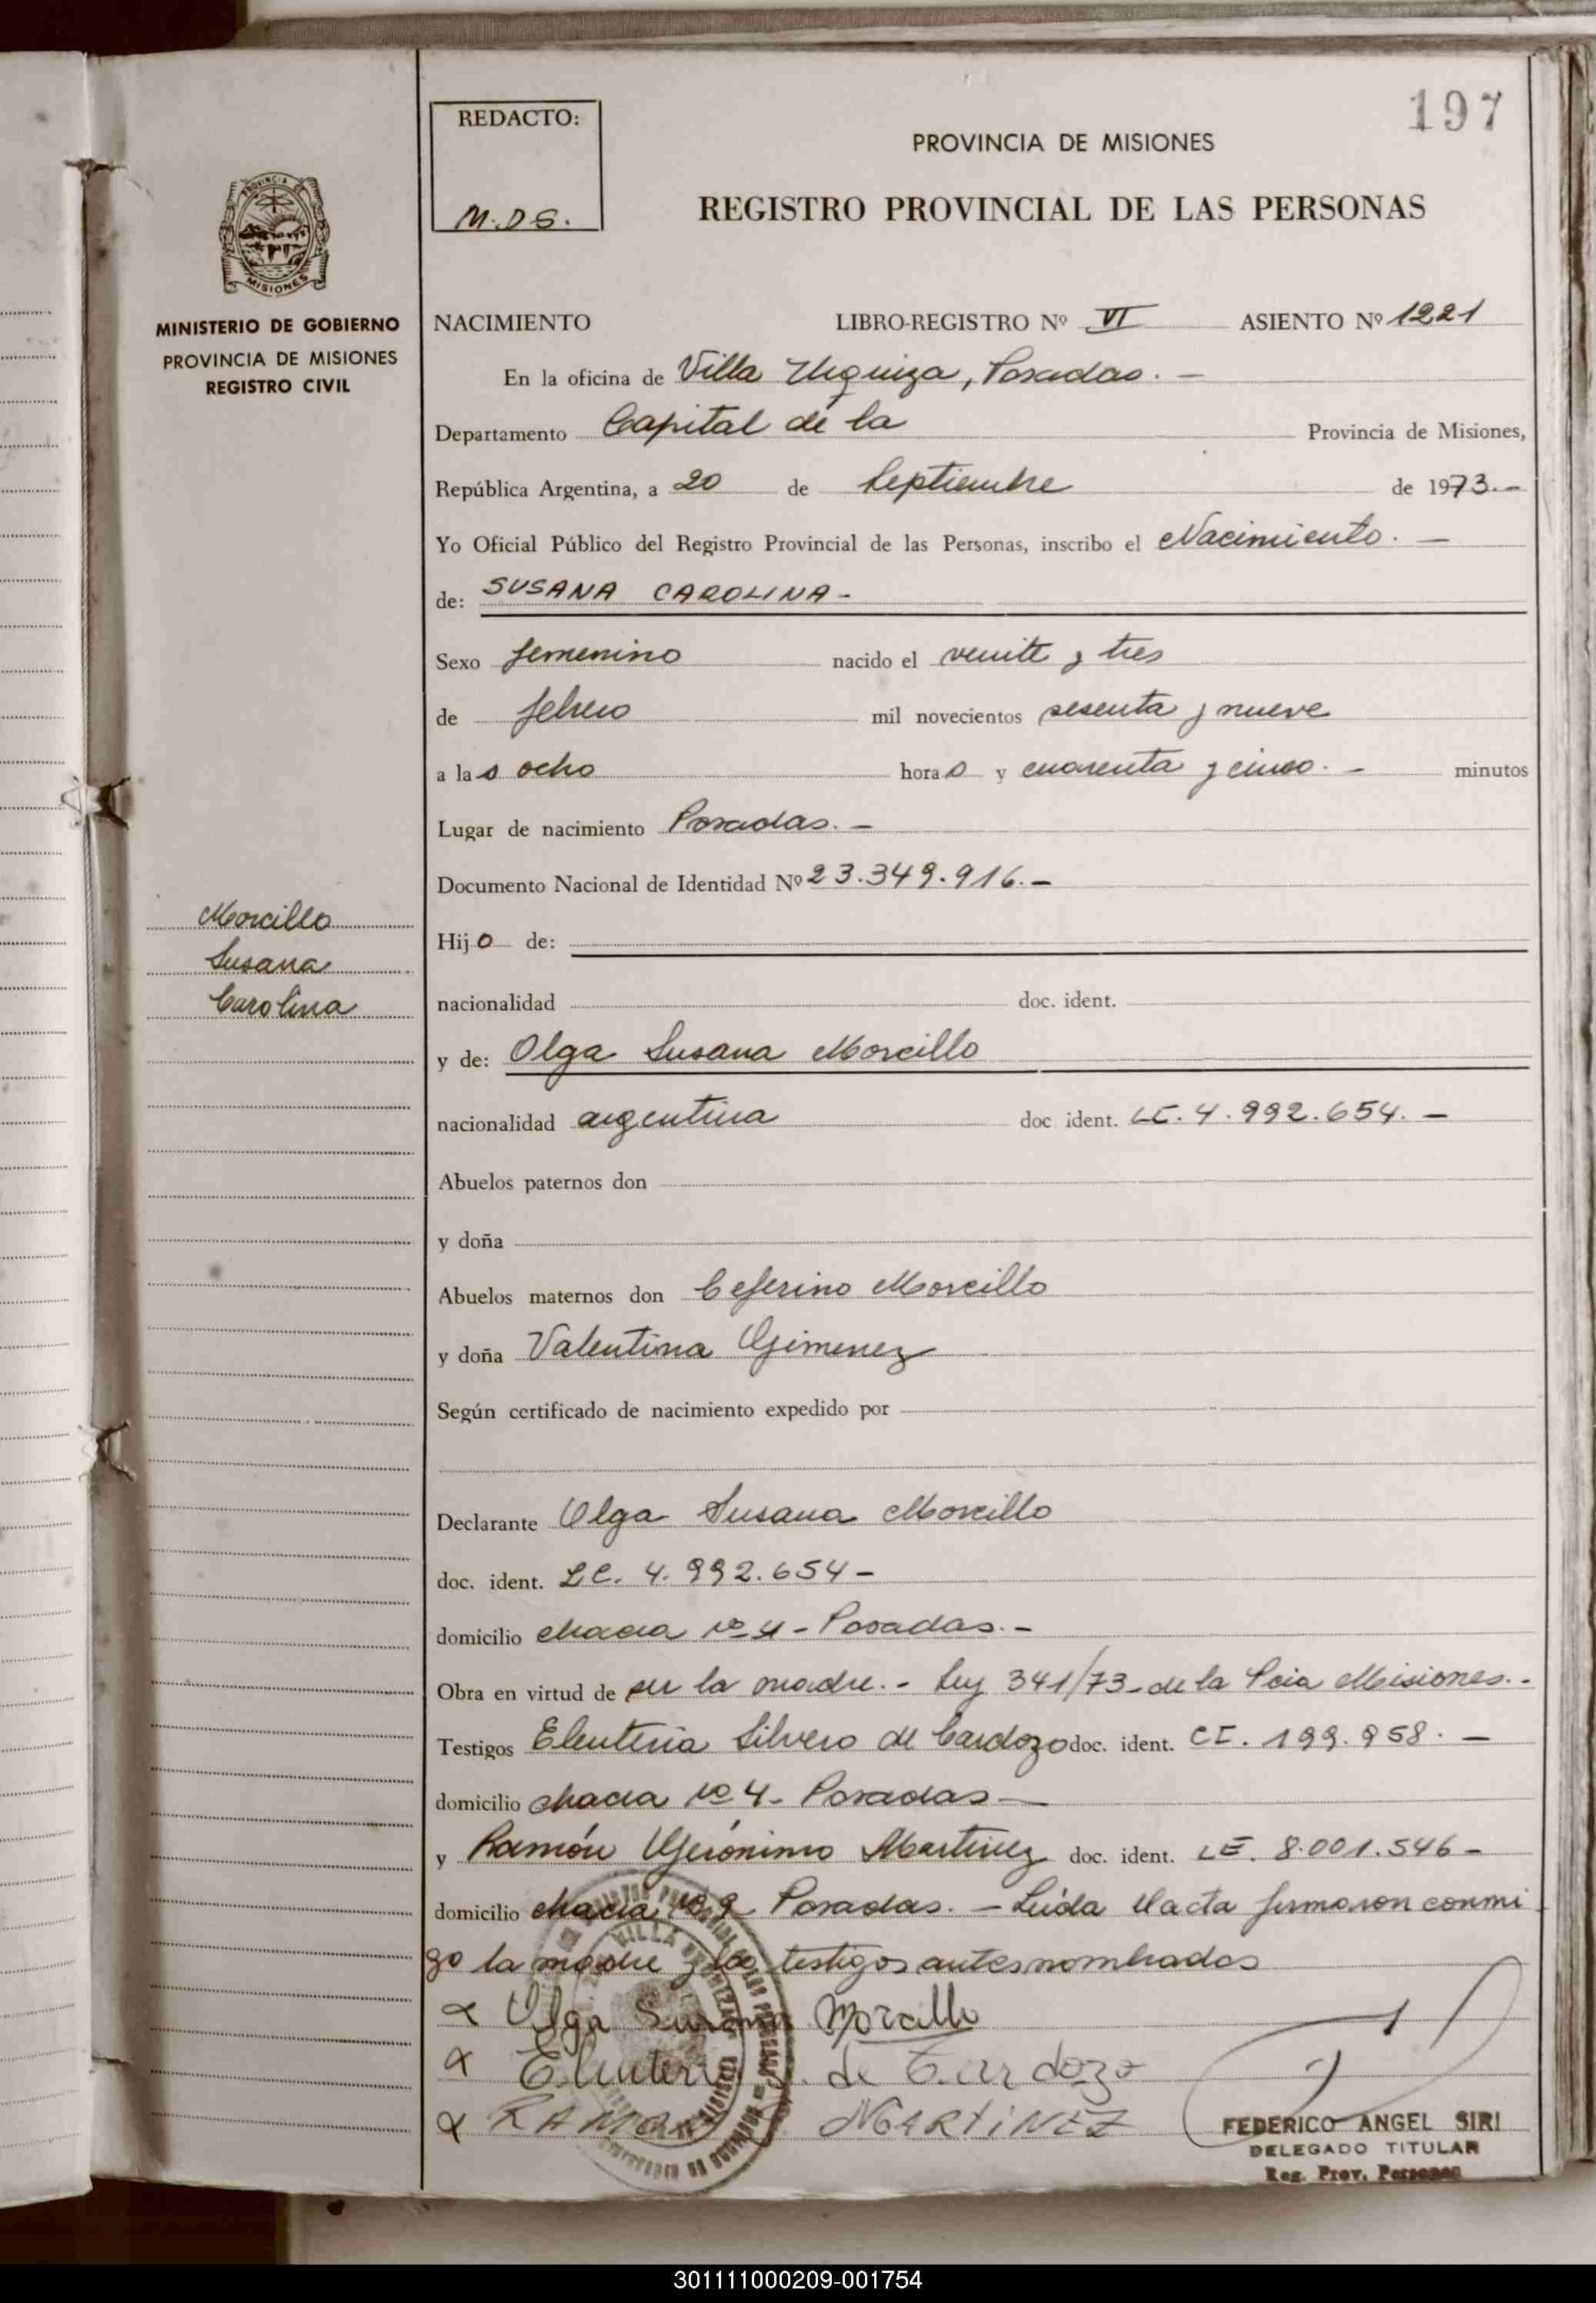 197
REDACTO:
M.D.S.
PROVINCIA DE MISIONES
REGISTRO PROVINCIAL DE LAS PERSONAS
PROVINCIA DE
MISIONES
MINISTERIO DE GOBIERNO
PROVINCIA DE MISIONES
REGISTRO CIVIL
NACIMIENTO LIBRO-REGISTRO Nº VI ASIENTO Nº 1221
En la oficina de Villa Urquiza, Posadas. —
Departamento Capital de la Provincia de Misiones,
República Argentina, a 20 de Septiembre de 1973.—
Yo Oficial Público del Registro Provincial de las Personas, inscribo el Nacimiento. —
de: SUSANA CAROLINA -
Sexo femenino nacido el veinte y tres
de febrero mil novecientos sesenta y nueve
a las ocho horas y cuarenta y cinco. - minutos
Lugar de nacimiento Posadas. —
Documento Nacional de Identidad Nº 23.349.916. —
Morcillo
Susana
Carolina
Hijo de:
nacionalidad doc. ident.
y de: Olga Susana Morcillo
nacionalidad argentina doc ident. LC. 4.992.654. —
Abuelos paternos don
y doña
Abuelos maternos don Ceferino Morcillo
y doña Valentina Gimenez
Según certificado de nacimiento expedido por
Declarante Olga Susana Morcillo
doc. ident. LC. 4.992.654 —
domicilio chacra nº 4 - Posadas. -
Obra en virtud de ser la madre. - Ley 341/73 - de la Pcia Misiones. -
Testigos Eleuteria Silvero de Cardozo doc. ident. CI. 199.958. —
domicilio chacra nº 4 - Posadas —
y Ramón Gerónimo Martinez doc. ident. LE. 8.001.546 -
domicilio chacra nº 9 Posadas. — Leída el acta firmaron conmi
go la madre y los testigos antes nombrados
Olga Susana Morcillo
Eleuteria de Cardozo
RAMON MARTINEZ
FEDERICO ANGEL SIRI
DELEGADO TITULAR
Reg. Prov. Personas
301111000209-001754